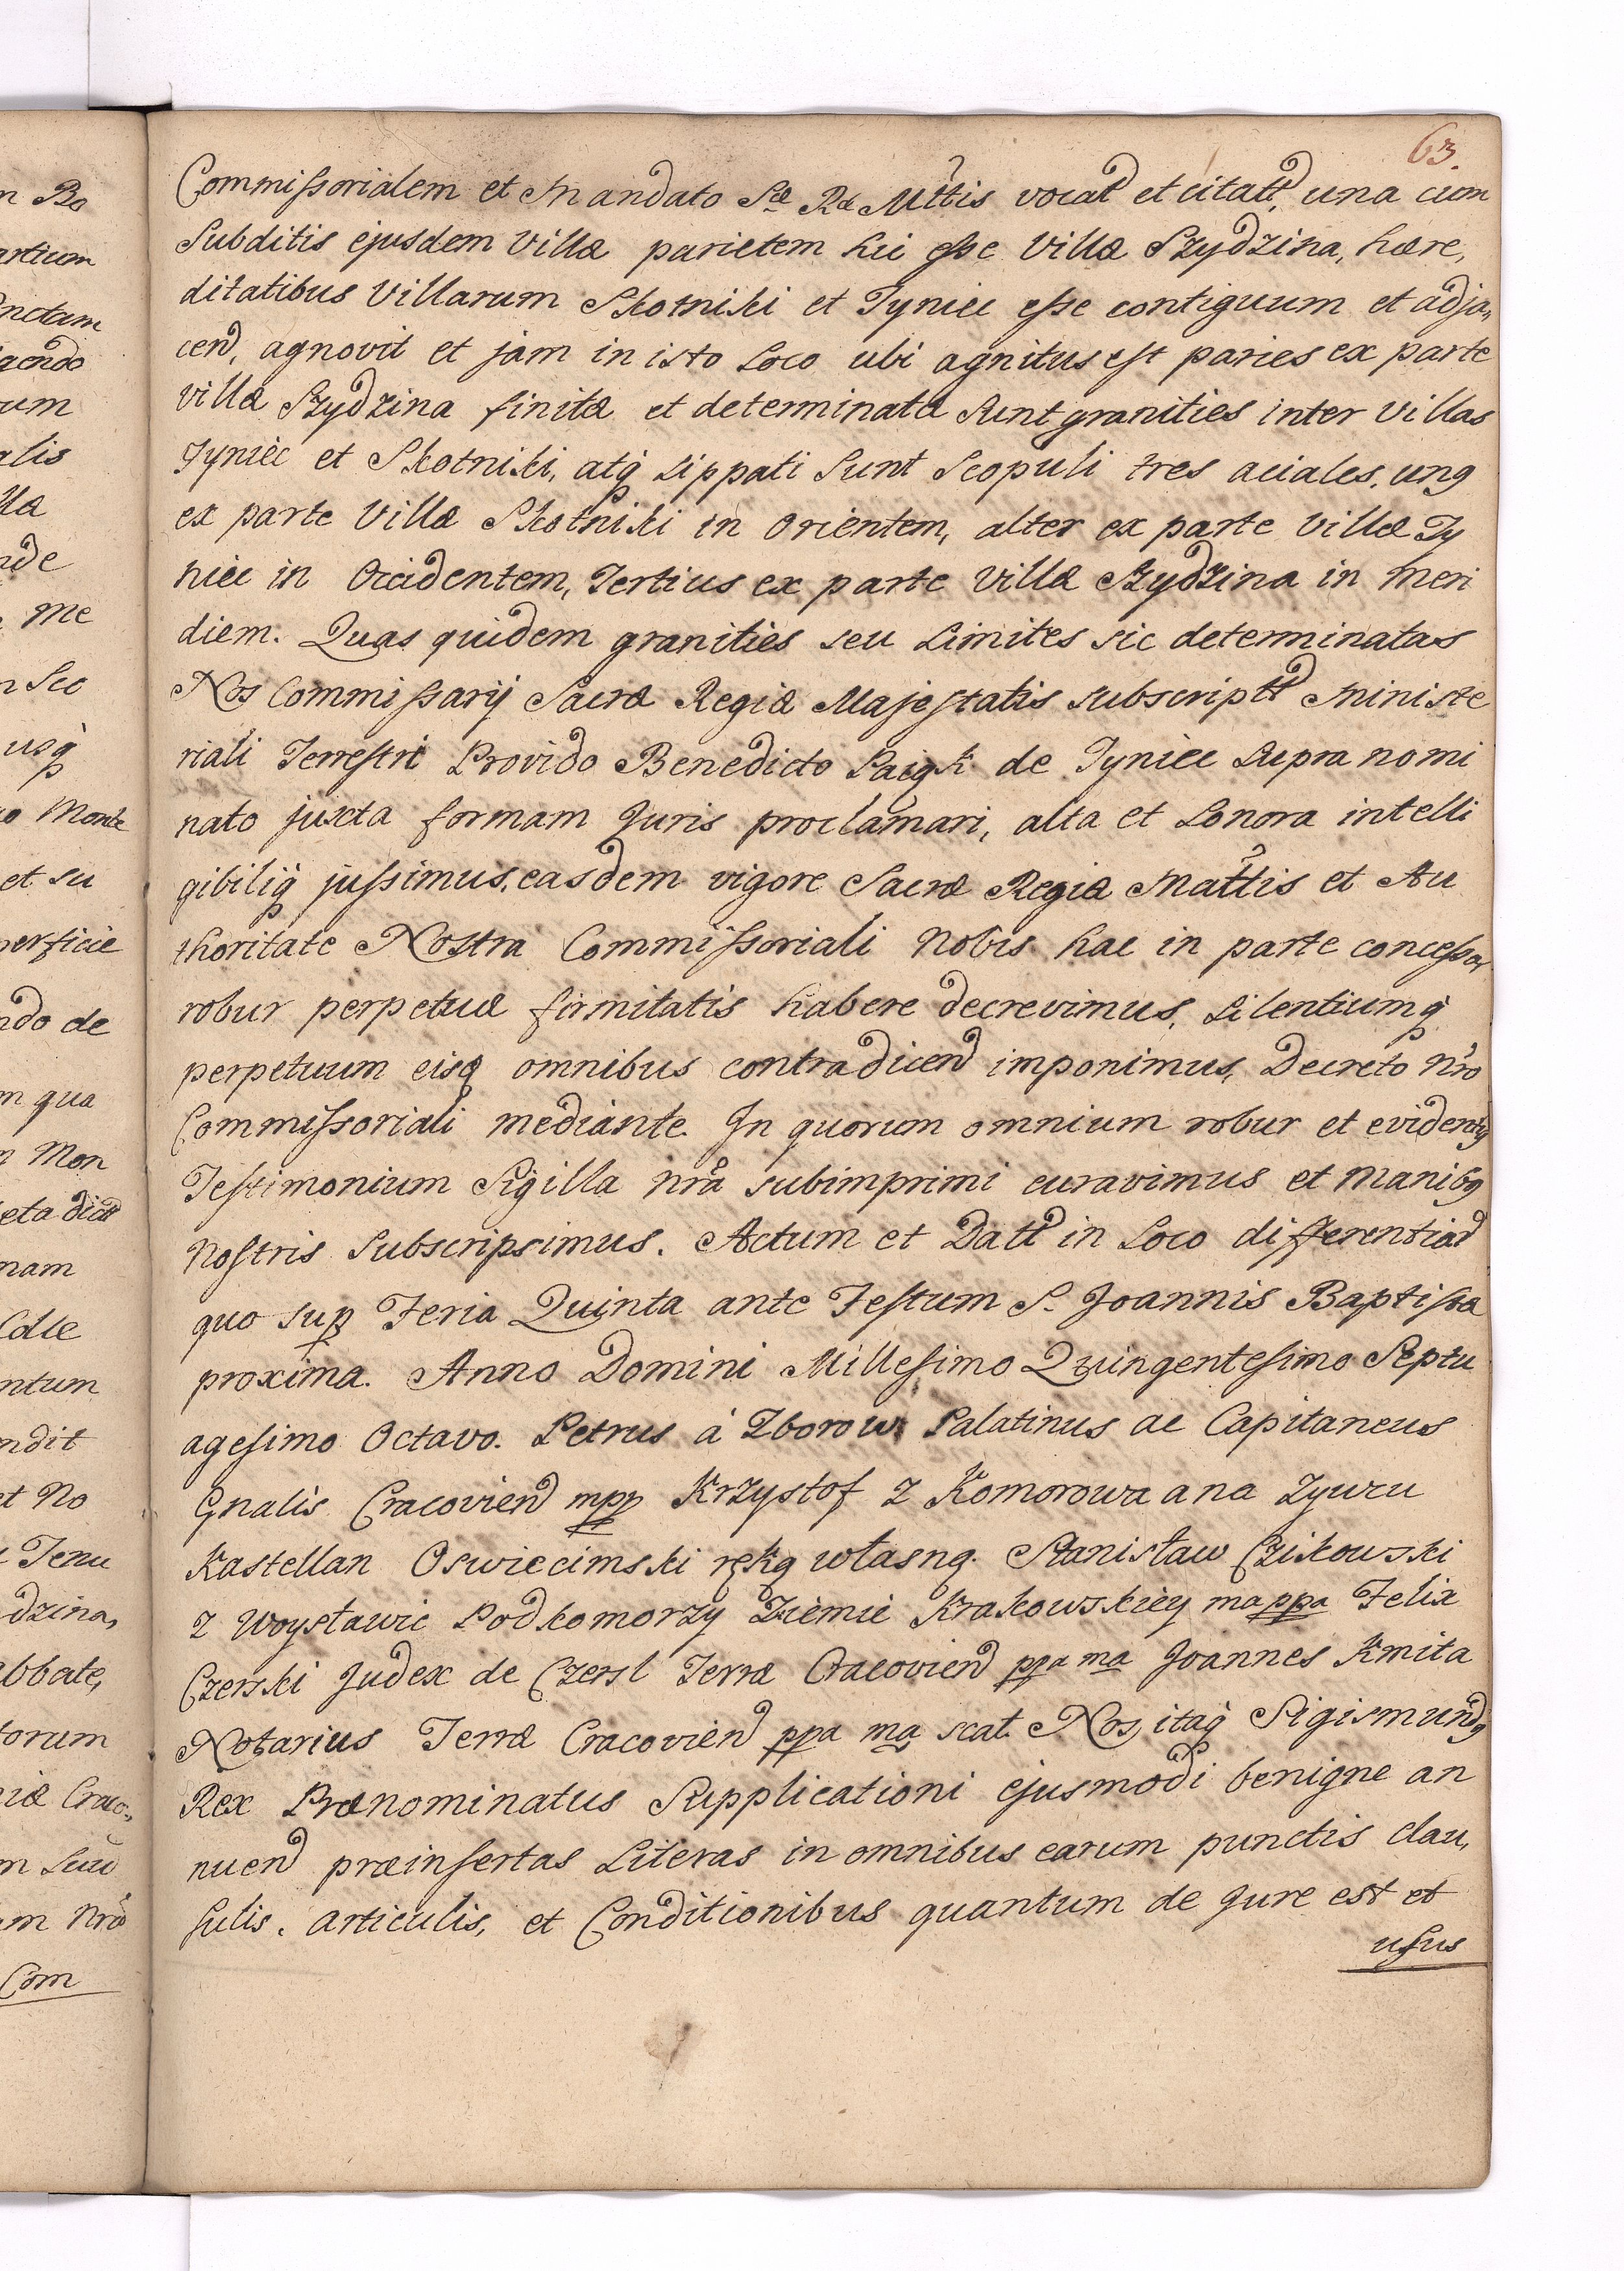 63.
Commissorialem et Mandato Sæ Ræ Mttis vocat et citatt, una cum
Subditis ejusdem Villæ parietem hic esse Villæ Szydzina, hære,
ditatibus Villarum Skotniki et Tyniec esse contiguum et adja,
cend, agnovit et jam in isto Loco ubi agnitus est paries ex parte
villæ Szydzina finitæ et determinatæ sunt granities inter villas
Tyniec et Skotniki, atq Sippati Sunt Scopuli tres aciales, unq
ex parte Villæ Skotniki in Orientem, alter ex parte Villæ Ty
niec in Occidentem, Tertius ex parte Villæ Szydzina in Meri
diem. Quas quidem granities seu Limites sic determinatas
Nos Commissarij Sacræ Regiæ Majestatis subscriptt Ministe
riali Terrestri Provido Benedicto Paigk de Tyniec supra nomi
nato juxta formam Juris proclamari, alta et Sonora intelli
gibiliq jussimus, easdem vigore Sacræ Regiæ Mattis et Au
thoritate Nostra Commissoriali Nobis hac in parte concessa,
robur perpetuæ firmitatis habere decrevimus, silentiumq
perpetuum eisq omnibus contradicend imponimus, Decreto Nro
Commissoriali mediante. In quorum omnium robur et evidentq
Testimonium Sigilla nra subimprimi curavimus et Manibq
Nostris Subscripsimus. Actum et Datt in Loco differentiad
quo sup Feria Quinta ante Festum S. Joannis Baptistæ
proxima. Anno Domini Millesimo Quingentesimo Septu
agesimo Octavo. Petrus á Zborow Palatinus ac Capitaneus
Gnalis Cracoviend mpp Krzystof z Komorowa a na Zywcu
Kastellan Oswiecimski ręką własną. Stanisław Czikowski
z Woysławic Podkomorzy Ziemie Krakowskiey ma ppa Felix
Czerski Judex de Czersl Terræ Cracoviend ppa ma Joannes Kmita
Notarius Terræ Cracoviend ppa ma scat. Nos itaq Sigismundq
Rex Prænominatus Supplicationi ejusmodi benigne an
nuend præinsertas Literas in omnibus earum punctis clau,
sulis, articulis, et Conditionibus quantum de Jure est et
usus